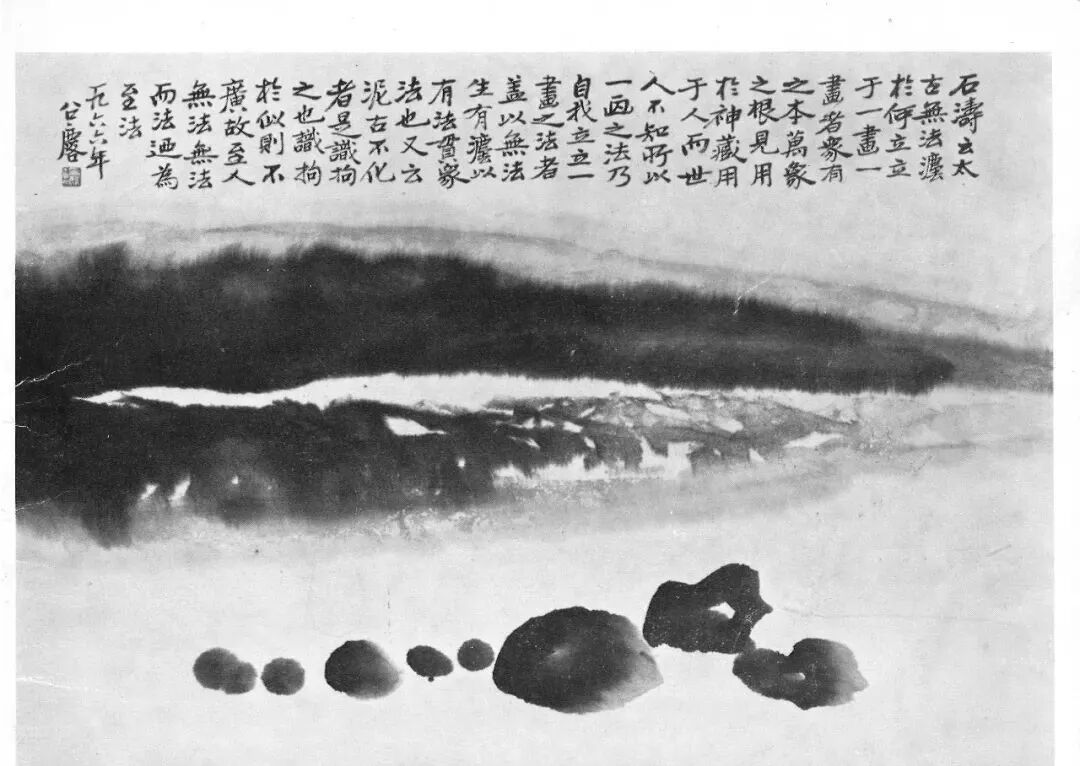 石濤云太
古無法灋
於何立立
于一畫一
畫者衆有
之本萬象
之根見用
於神藏用
于人而世
人不知所以
一画之法乃
自我立立一
畫之法者
盖以無法
生有灋以
有法貫衆
法也又云
泥古不化
者是識拘
之也識拘
於似則不
廣故至人
無法無法
而法迺為
至法
一九六六年